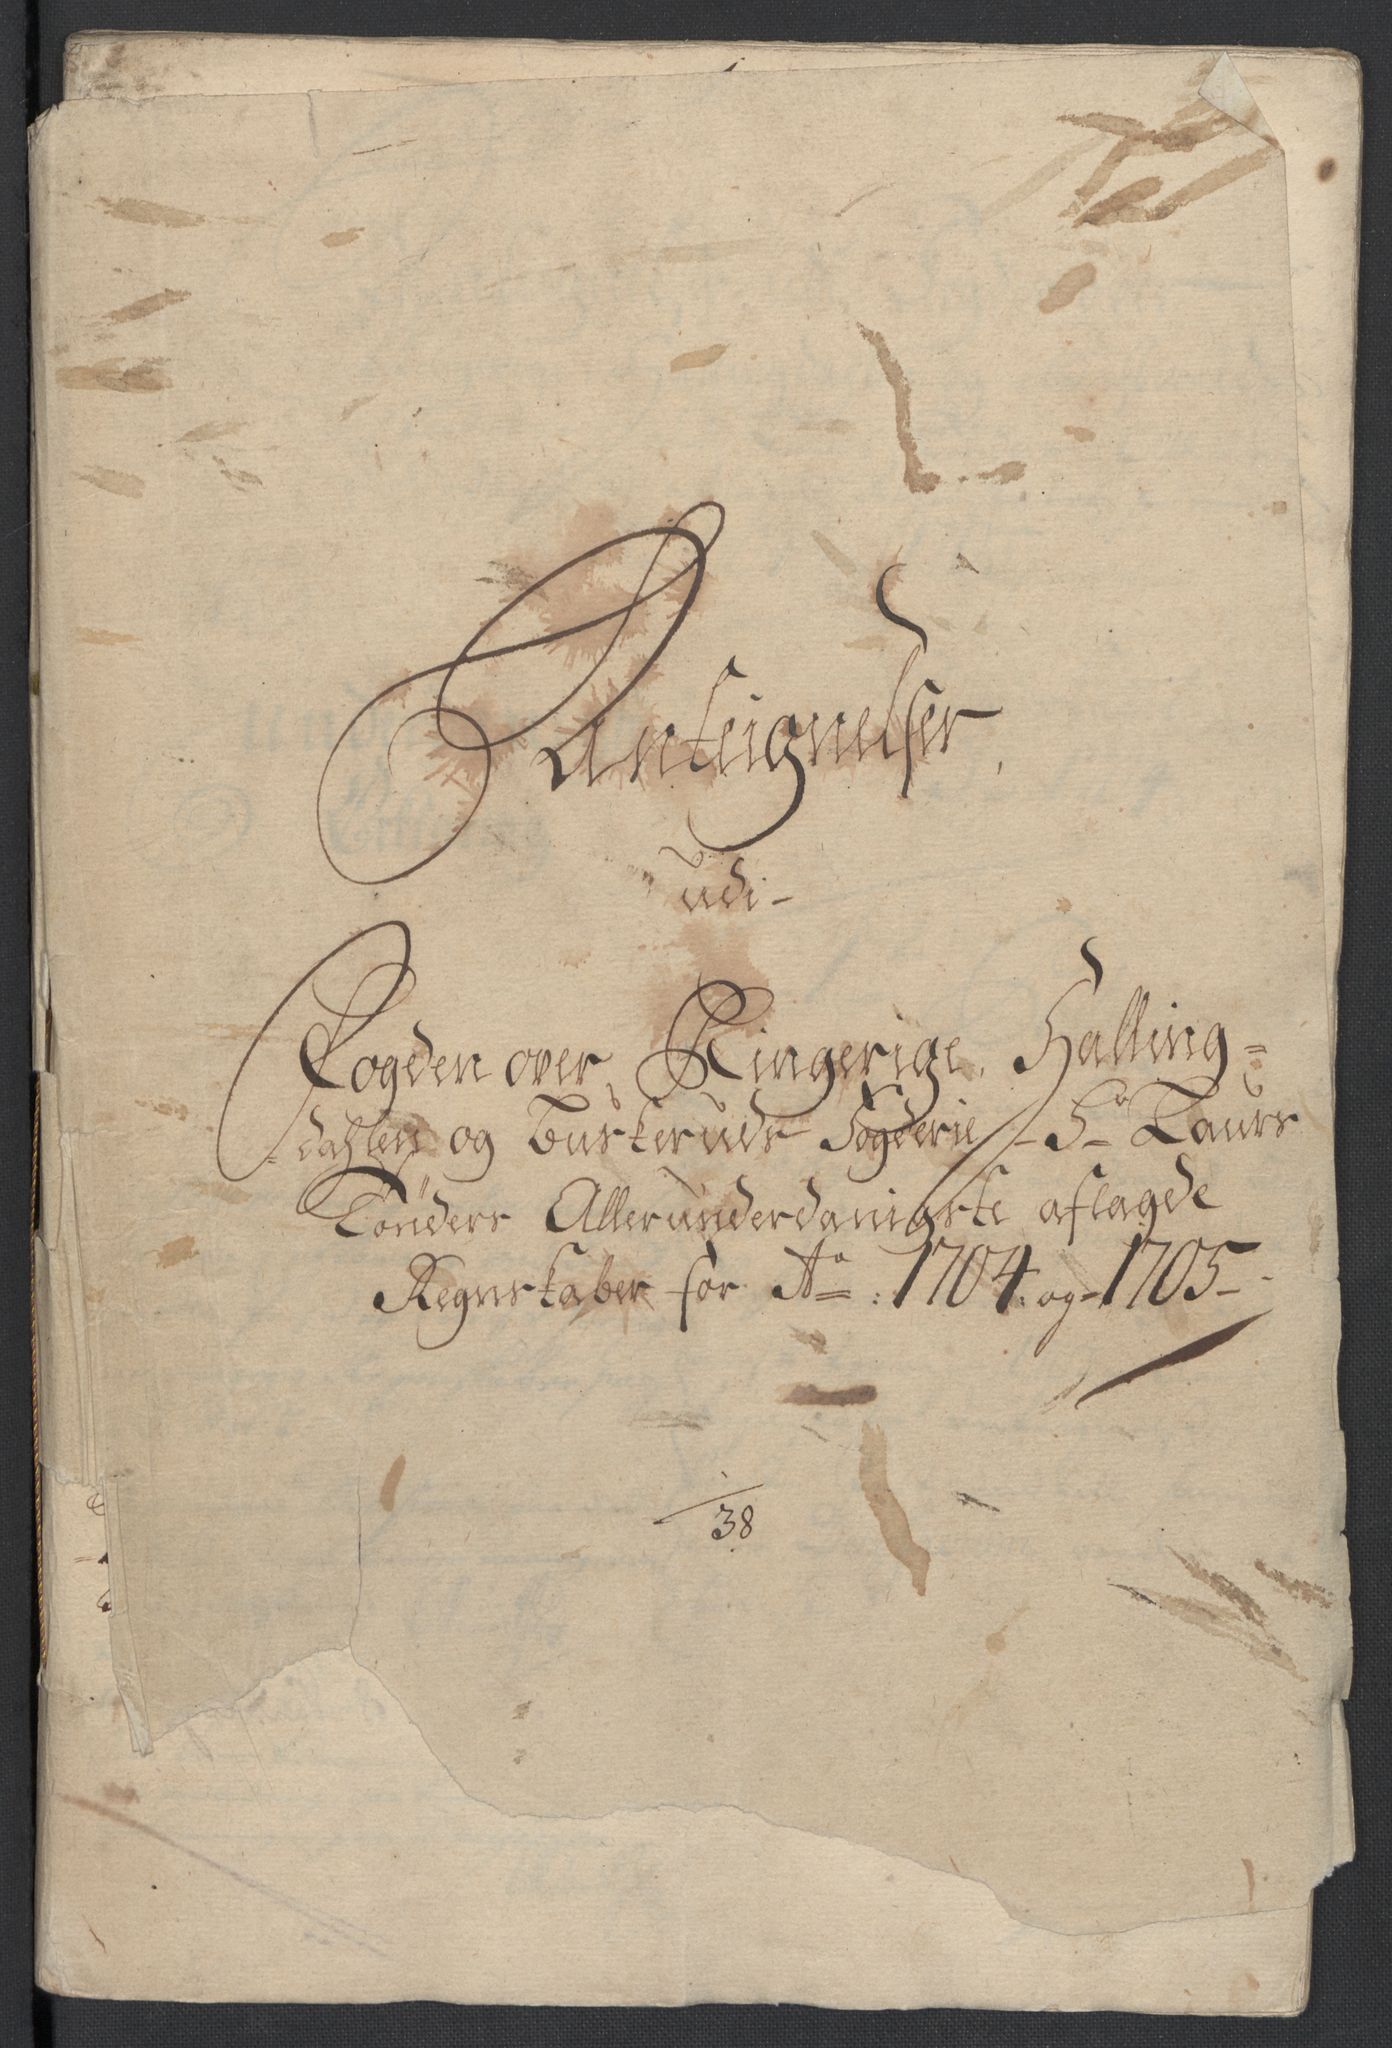 Anteignelser
udi
Fogden over Ringerige, Halling=
dahlen og Buskeruds Fogderie Hr Laurs
Tönders Allerunderdanigste aflagde
Regnskaber for Ao: 1704. og 1705
38